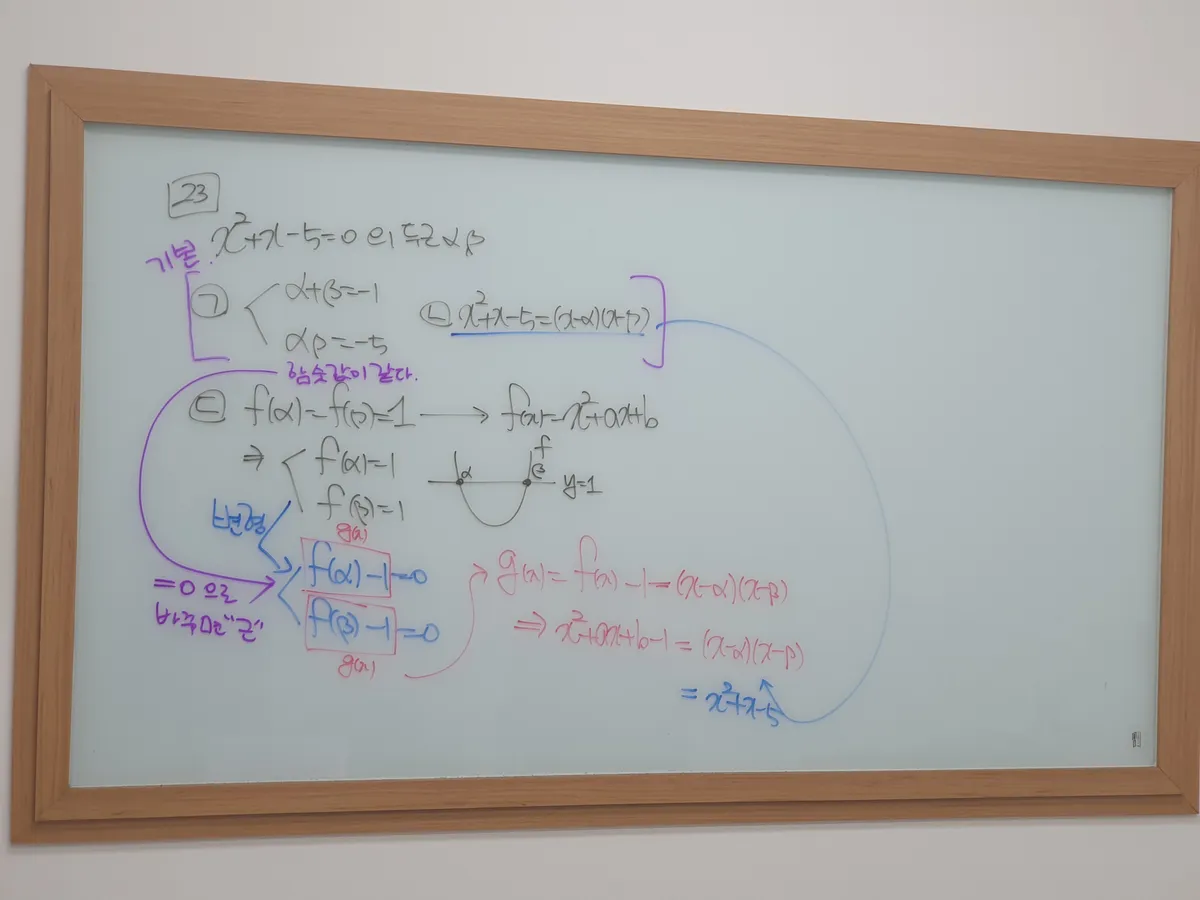 23
x²+x-5=0 의 두근 α β
기본.
㉠ α+β=-1
αβ=-5
㉡ x²+x-5=(x-α)(x-β)
함숫값이 같다.
㉢ f(α)=f(β)=1 → f(x)=x²+ax+b
⇒ f(α)=1
f(β)=1
f
α β y=1
변형
g(x)
f(α)-1=0
f(β)-1=0
g(x)
=0 으로
바꾸면 "근"
g(x)=f(x)-1=(x-α)(x-β)
⇒ x²+ax+b-1=(x-α)(x-β)
=x²+x-5